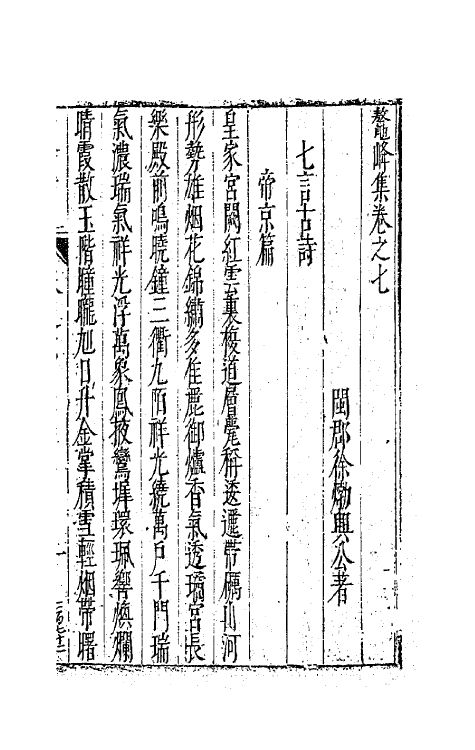 鼇峰集卷之七
閩郡徐𤊹興公著
七言古詩
帝京篇
皇家宮闕紅雲裏複道層甍稱逶邐帶礪山河
形勢雄烟花錦繡多佳麗御爐香氣透璚宮長
樂殿前鳴曉鐘三衢九陌祥光繞萬戶千門瑞
氣濃瑞氣祥光浮萬象鳳掖鸞墀環珮響煥爛
晴霞散玉階曈曨旭日升金掌積雪輕烟帶曙